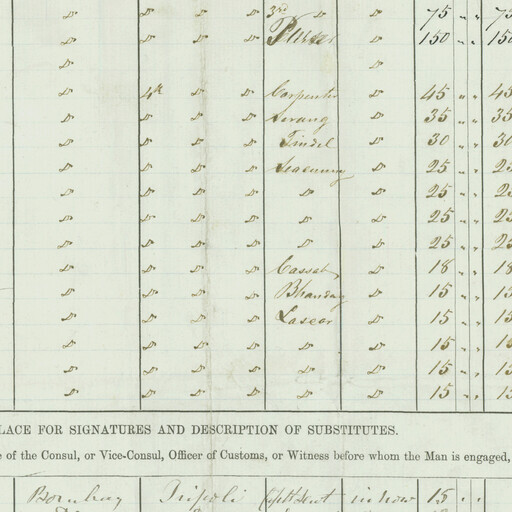 do do do 3rd do 75 " " 75
do do do Purser do 150 " " 150
do do
do 4th do do Carpenter do 45 " " 45
do do do Serang do 35 " " 35
do do do Tindel do 30 " " 30
do do do Seacunny do 25 " " 25
do do do do do 25 " "
do do do do do 25 " " 25
do do do do do 25 " " 25
do do do Casset do 18 " " 18
do do do Bhandary do 15 " " 15
do do do Lascar do 15 " " 15
do do do do do 15 " "
do do do do do 15 " " 15
do do do do do 15 " " 15
LACE FOR SIGNATURES AND DESCRIPTION OF SUBSTITUTES.
of the Consul, or Vice-Consul, Officer of Customs, or Witness before whom the Man is engaged,
Bombay Tripoli 15 " "